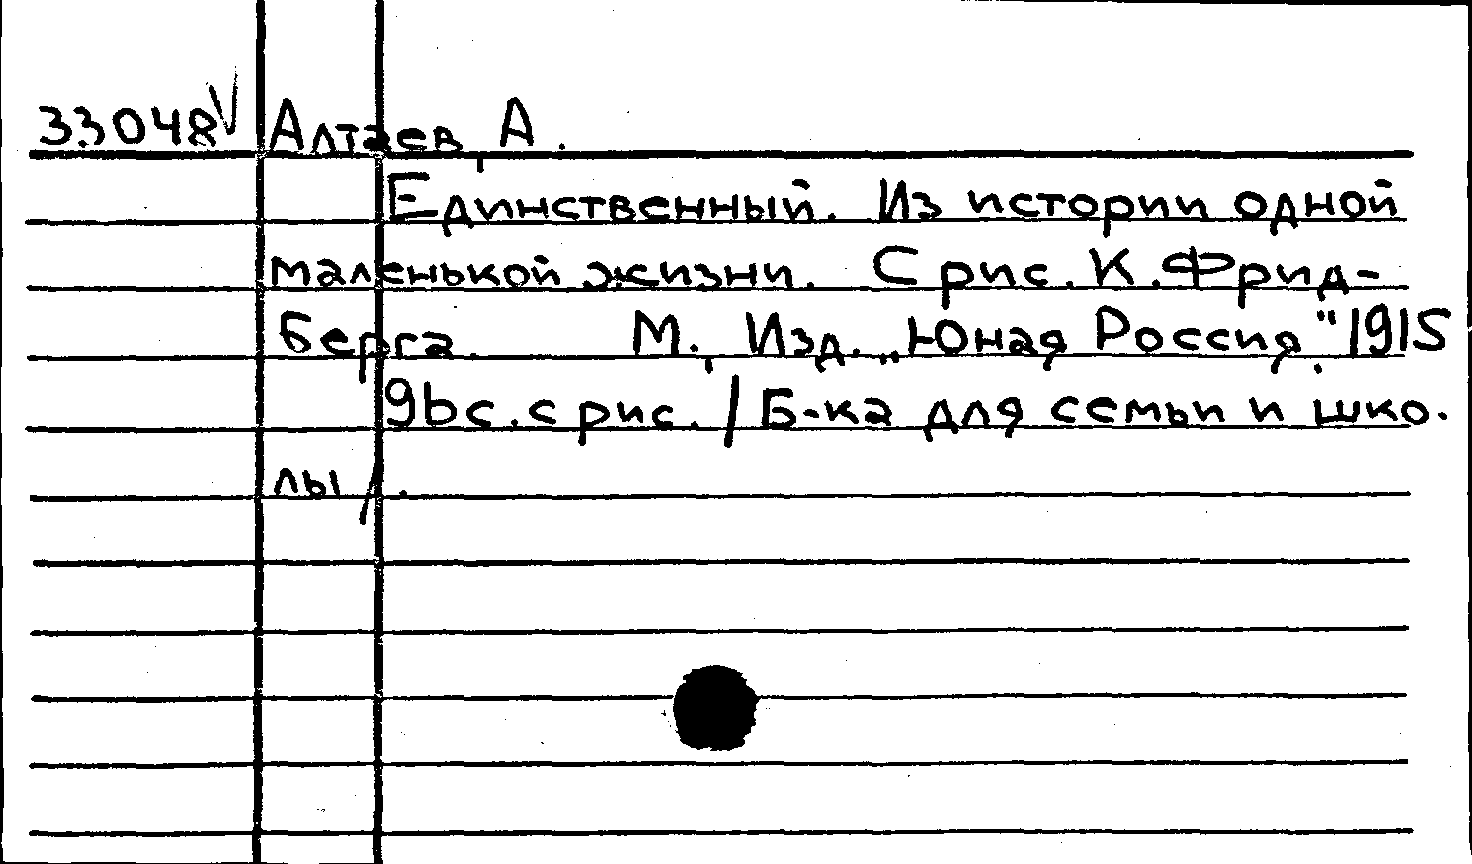 33048 V Алтаев, А.
Единственный. Из истории одной
маленькой жизни. С рис. К. Фрид-
берга. М., Изд. „Юная Россия", 1915
96 с. с рис. / Б-ка для семьи и шко-
лы /.